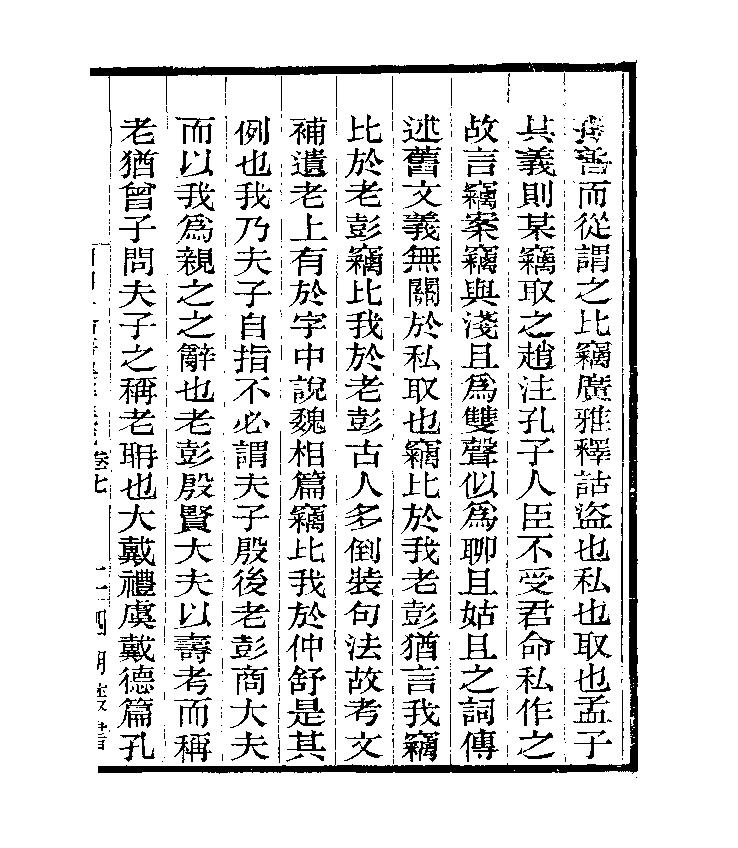 善而從謂之比竊廣雅釋詁盜也私也取也孟子
其義則某竊取之趙注孔子人臣不受君命私作之
故言竊案竊與淺且為雙聲似為聊且姑且之詞傳
述舊文義無關於私取也竊比於我老彭猶言我竊
比於老彭竊比我於老彭古人多倒裝句法故考文
補遺老上有於字中說魏相篇竊比我於仲舒是其
例也我乃夫子自指不必謂夫子殷後老彭商大夫
而以我為親之之辭也老彭殷賢大夫以壽考而稱
老猶曾子問夫子之稱老耼也大戴禮虞戴德篇孔
卷七
四明叢書